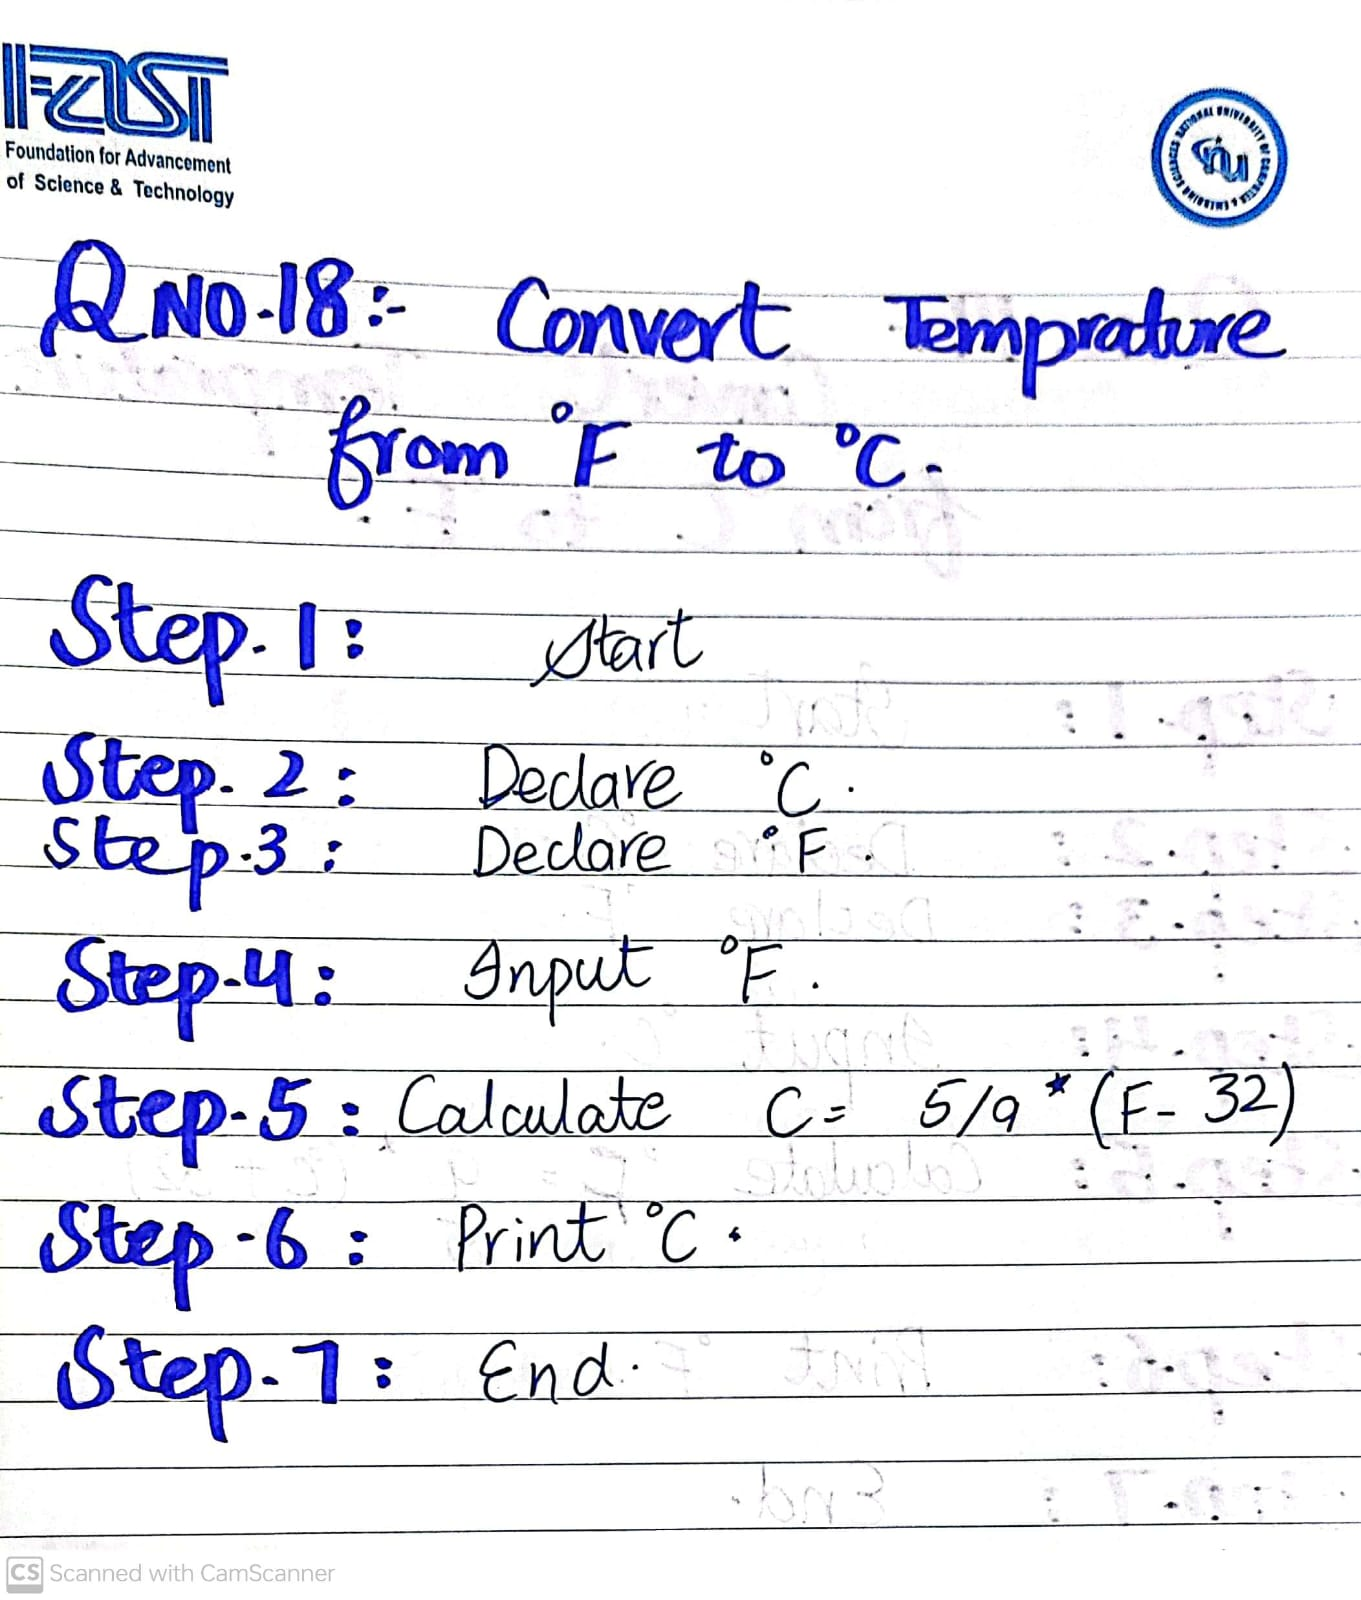 FAST
Foundation for Advancement
of Science & Technology
NATIONAL UNIVERSITY OF COMPUTER & EMERGING SCIENCES
nu
Q NO.18:- Convert Temprature
from °F to °C.
Step.1: Start
Step.2: Declare °C.
Step.3: Declare °F.
Step.4: Input °F.
Step-5: Calculate C= 5/9 * (F- 32)
Step-6: Print °C.
Step-7: End.
CS Scanned with CamScanner